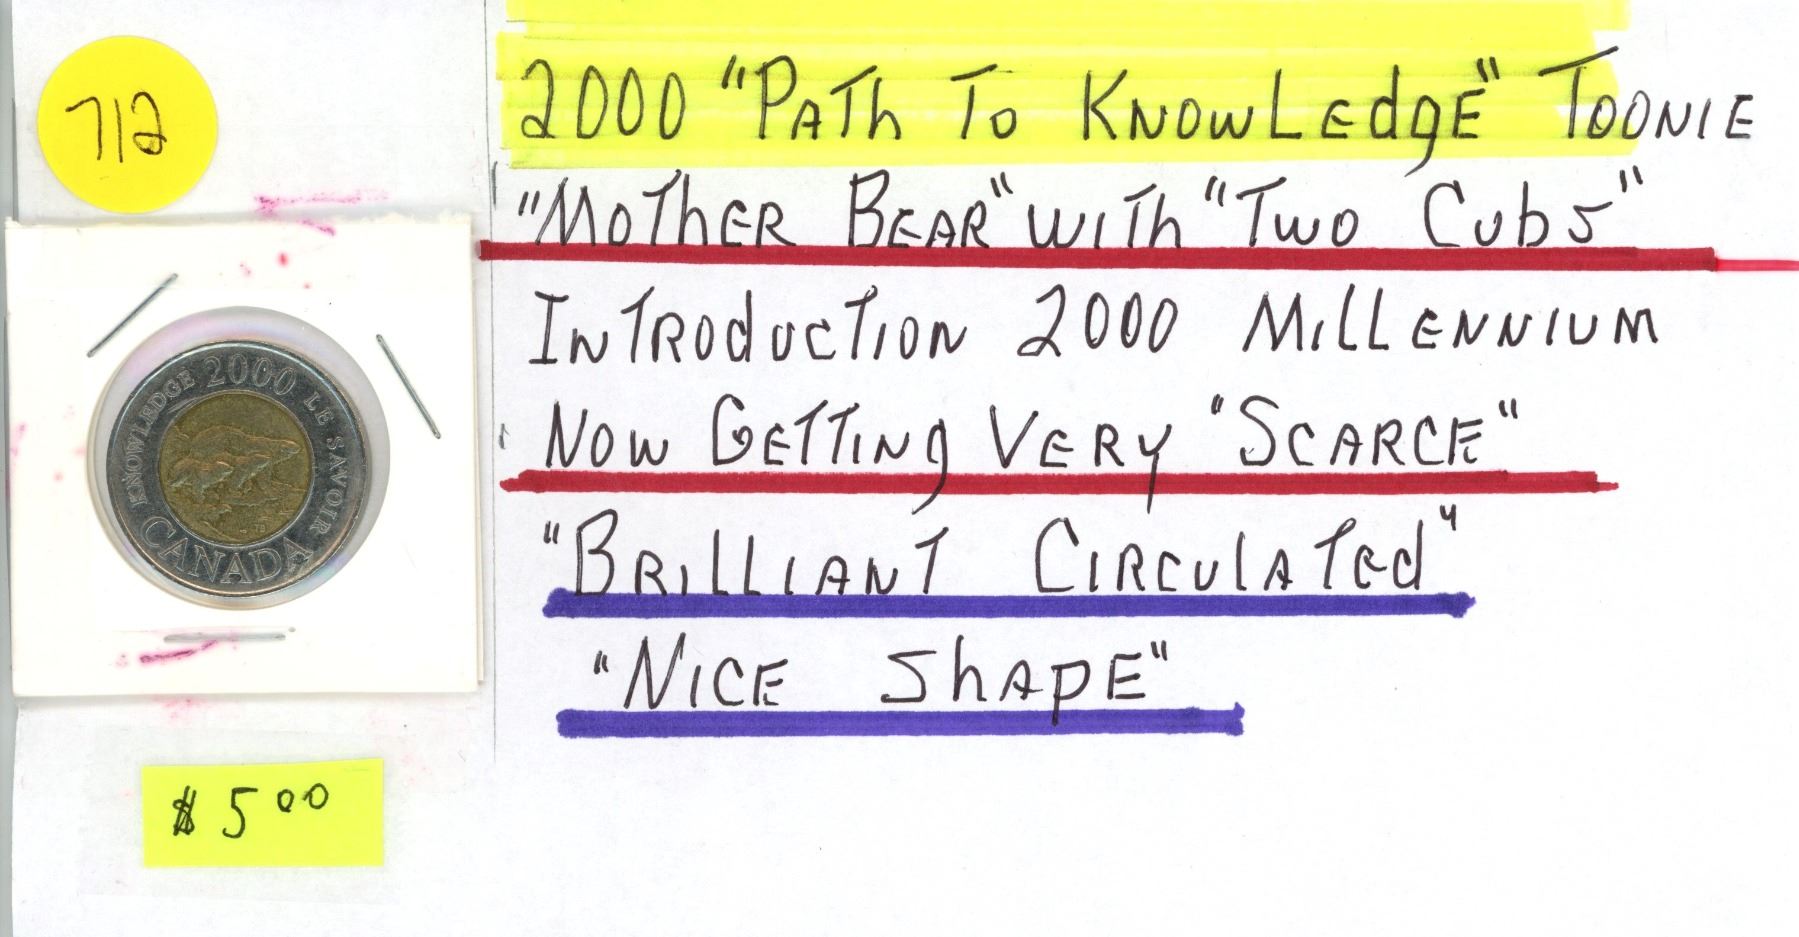 712
2000 "Path To Knowledge" Toonie
"Mother Bear" with "Two Cubs"
Introduction 2000 Millennium
Now Getting Very "Scarce"
"Brilliant Circulated"
"Nice Shape"
KNOWLEDGE 2000 LE SAVOIR
CANADA
$5.00